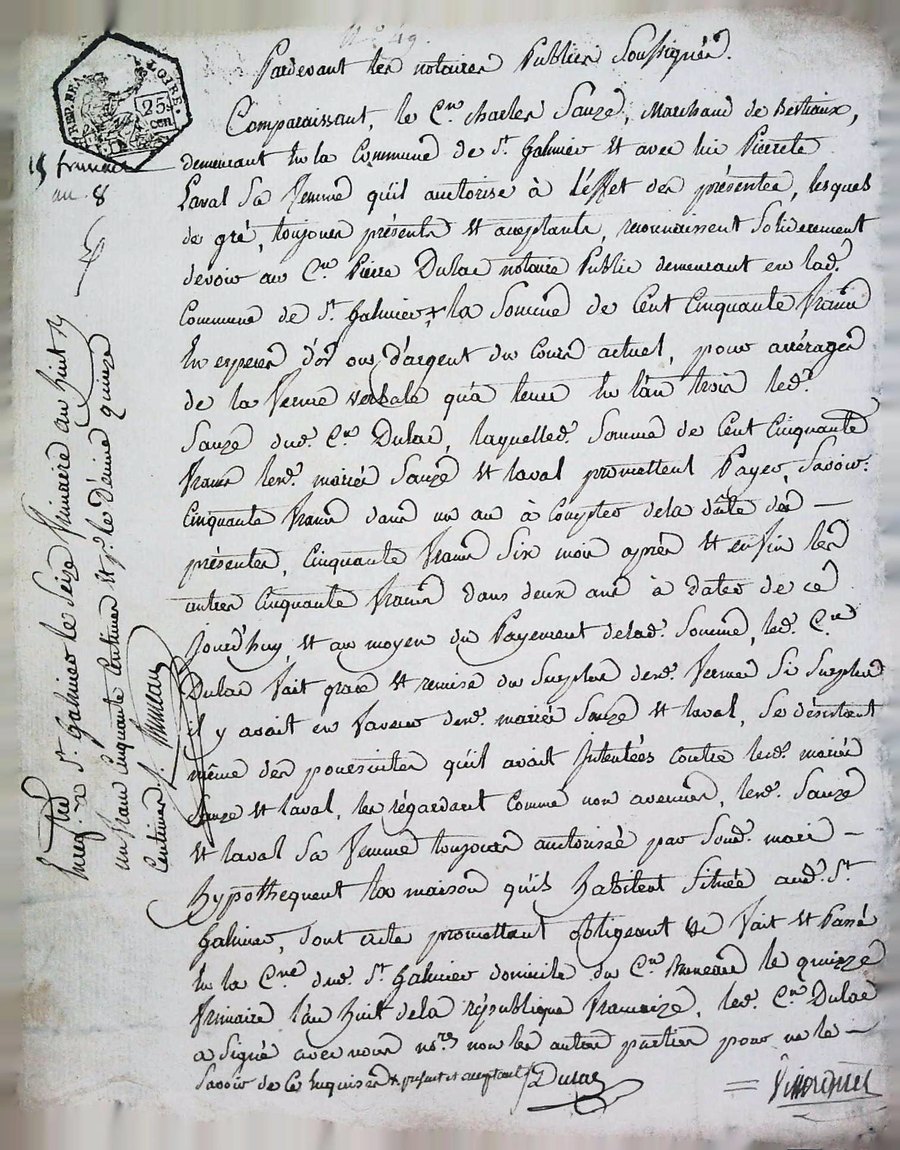 N° 49.
REP. FRA
LOIRE
25
cen
15 frimaire
an 8
Pardevant les notaires Publics Soussignés.
Comparaissant, le C.en Charles Sauze, Marchand de Bestiaux,
demeurant En la Commune de S.t Galmier Et avec lui Pierrete
Laval Sa femme qu'il autorise à l'éffet des présentes, lesquels
de gré, toujours présents Et acceptants, reconnaissent Soliderement
devoir au C.en Pierre Dulac notaire Public demeurant en lad.
Commune de S.t Galmier + la Somme de Cent Cinquante francs
En especes d'or ou d'argent du Cours actuel, pour arrérages
de la ferme verbale qu'a tenue En l'an trois led.
Sauze dud. C.en Dulac, laquelled. Somme de Cent Cinquante
francs lesd. mariés Sauze Et laval promettent Payer, Savoir:
Cinquante francs dans un an à Compter de la date des —
présentes, Cinquante francs Six mois après Et enfin les
autres Cinquante francs dans deux ans à dater de ce
jourd'huy, Et au moyen du Payement delad. Somme, led. C.en
Dulac fait grace Et remise du Surplus desd. ferme Si Surplus
il y avait en faveur desd. mariés Sauze Et laval, Se désistant
même des poursuites qu'il avait Intentées Contre lesd. mariés
Sauze Et laval, les régardant Comme non avenues, lesd. Sauze
Et laval Sa femme toujours autorisée par Sond. mari —
hypothequent la maison qu'ils habitent Située aud. S.t
Galmier, dont acte promettant obligeant Et fait Et Passé
En la C.ne dud. S.t Galmier domicile du C.en le quinze
frimaire l'an huit dela république francaize, led. C.en Dulac
a Signé avec nous no.res non les autres parties pour ne le —
Savoir de Ce Enquises + présent et acceptant Dulac
Enreg.tré a S.t Galmier le Seize frimaire an huit
un franc Cinquante Centimes Et p.r le Décime quinze
Centimes.